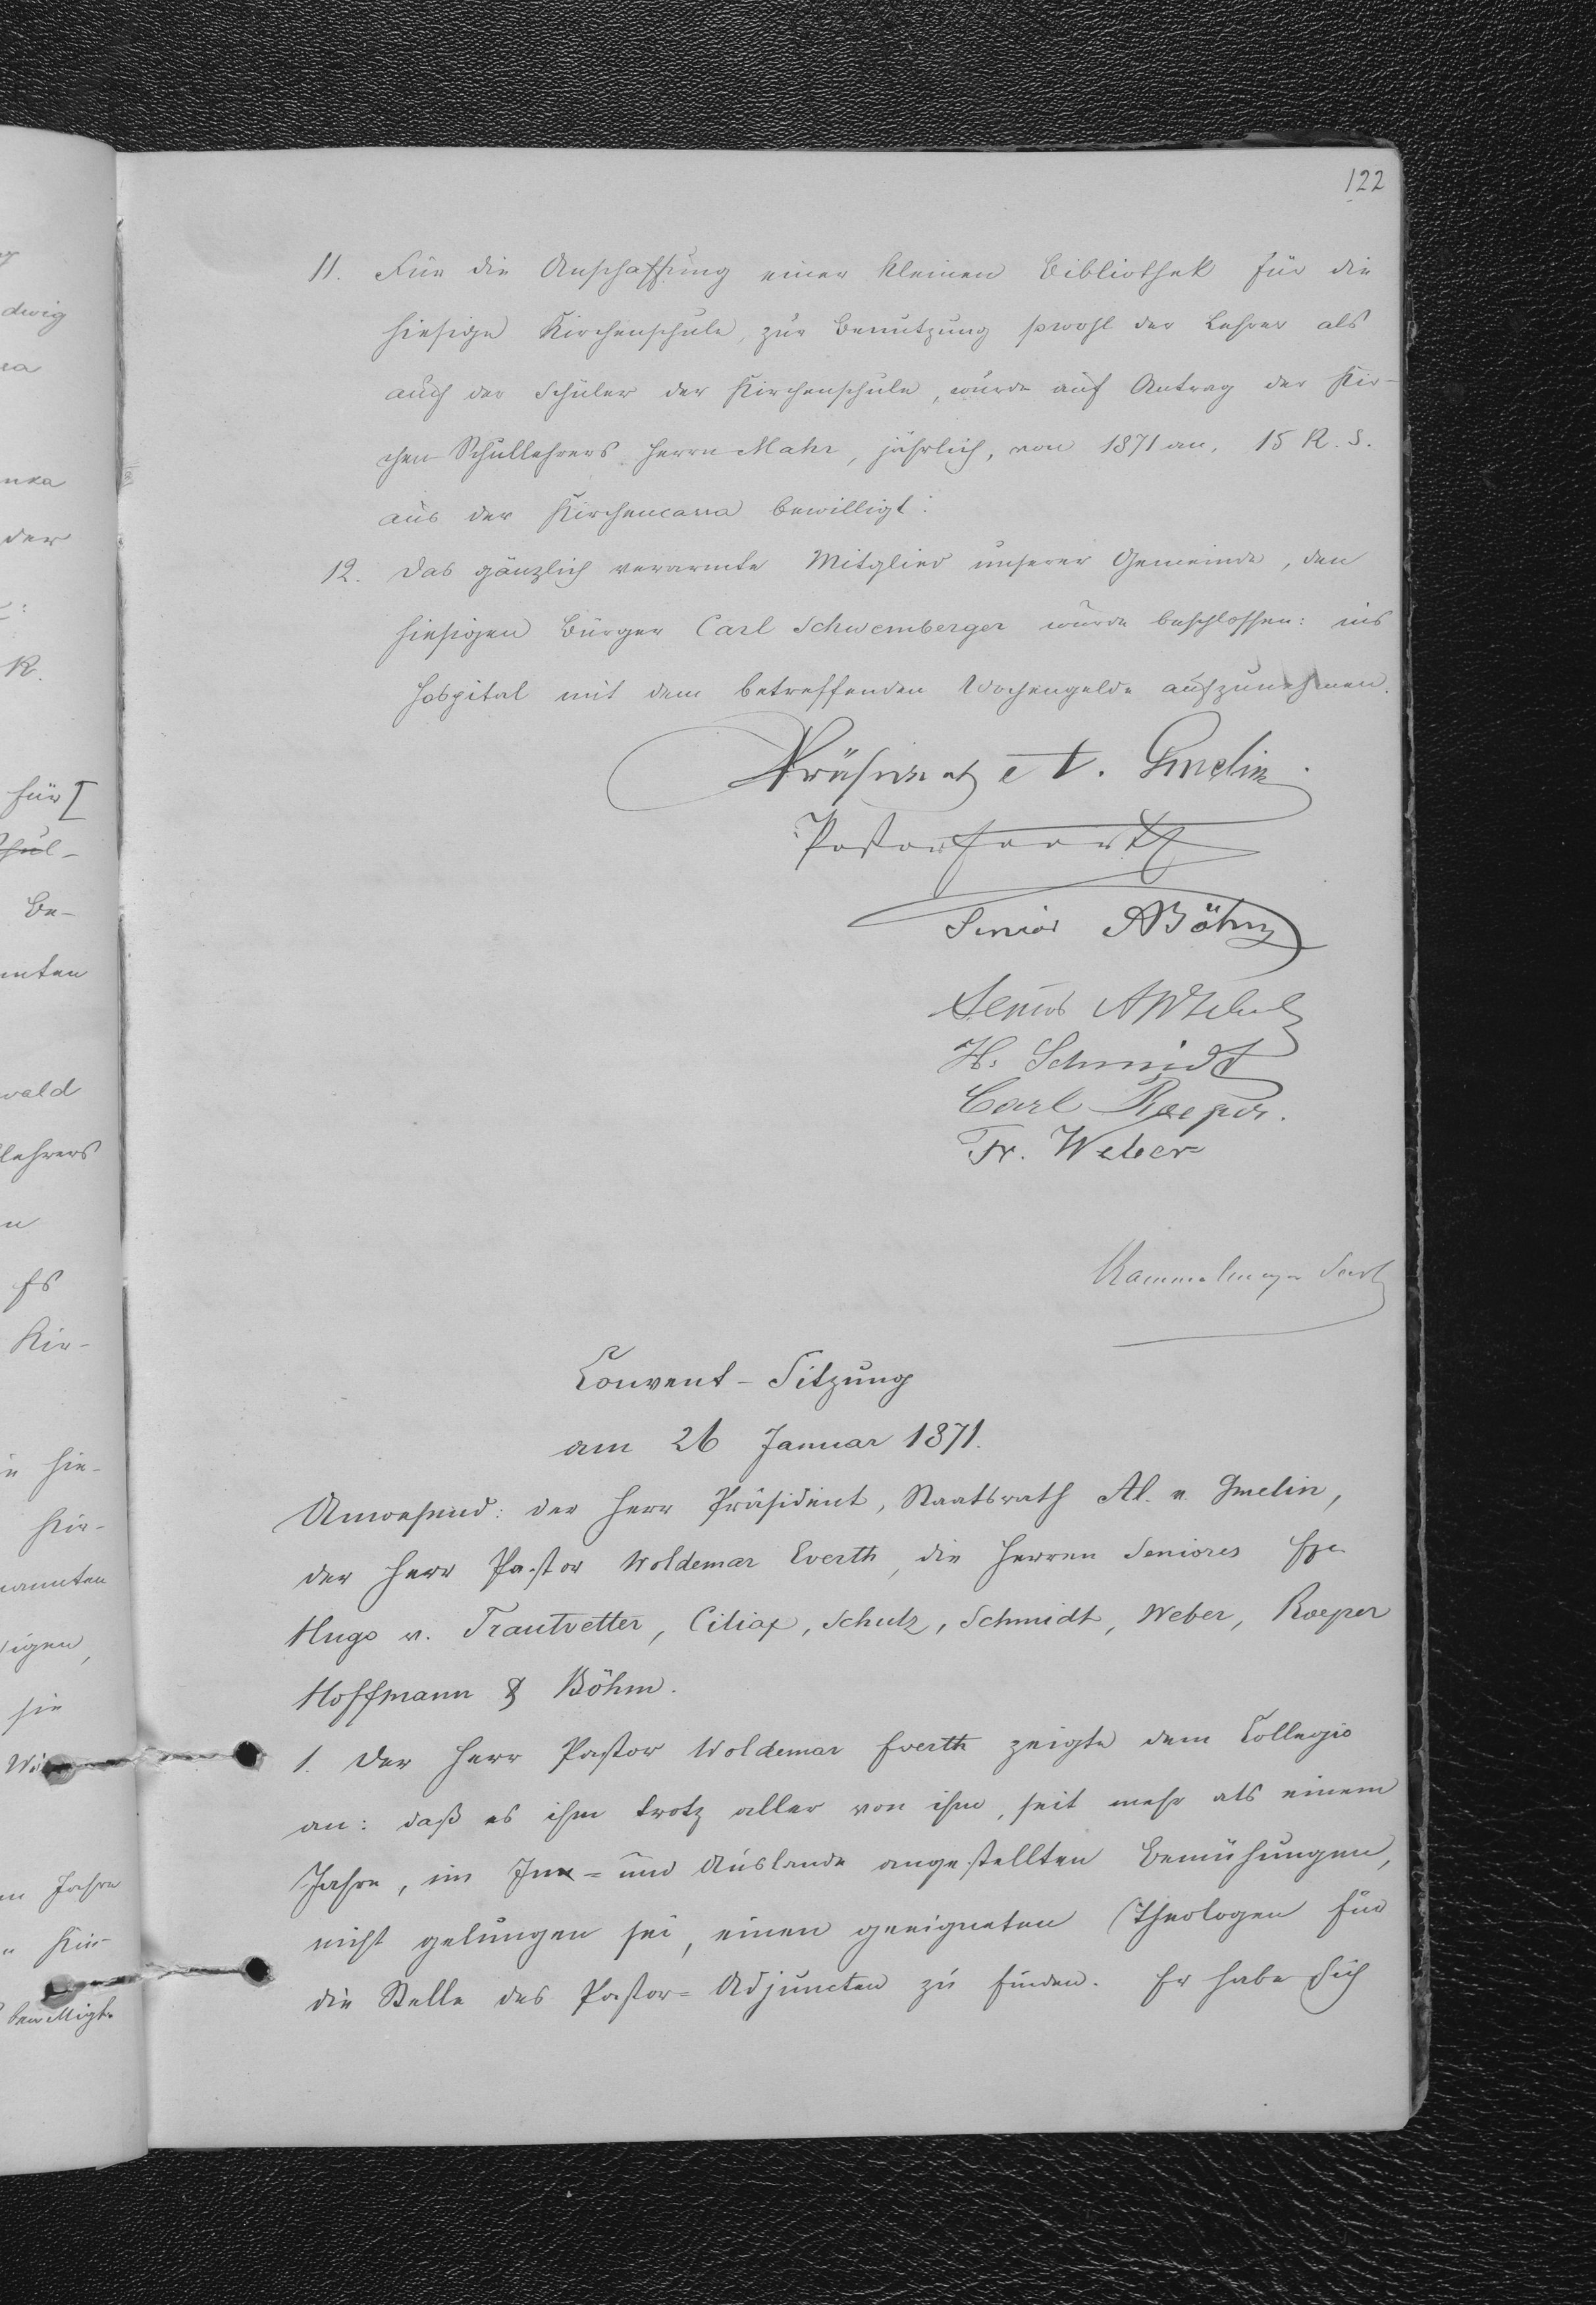 122
11. Für die Anschaffung einer kleinen Bibliothek für die
hiesige Kirchenschule, zur Benutzung sowohl der Lehrer als
auch der Schüler der Kirchenschule, wurde auf Antrag des Kir-
chen Schullehrers Herrn Mahr, jährlich, von 1871 an, 15 R. S.
aus der Kirchencassa bewilligt.
12. Das gänzlich verarmte Mitglied unserer Gemeinde, den
hiesigen Bürger Carl Schwemberger wurde beschlossen: ins
Hospital mit dem betreffenden Wochengelde aufzunehmen.
Präsident A. Gmelin.
Pastor Everth
Senior ABöhm
Senior Schulz
H. Schmidt
Carl Roeper.
Fr. Weber
Kammelmeyer
Convent-Sitzung
am 26 Januar 1871.
Anwesend: der Herr Präsident, Staatsrath Al. v Gmelin,
der Herr Pastor Woldemar Everth, die Herren Seniores
Hugo v. Trautvetter, Ciliax, Schulz, Schmidt, Weber, Roeper
Hoffmann & Böhm.
1. Der Herr Pastor Woldemar Everth zeigte dem Collegio
an: daß es ihm trotz aller von ihm, seit mehr als einem
Jahre, im In= und Auslande angestellten Bemühungen,
nicht gelungen sei, einen geeigneten Theologen für
die Stelle des Pastor=Adjuncten zu finden. Er habe sich